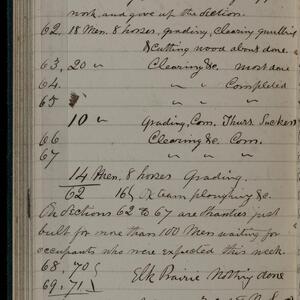 work, and give up the Section.
62. 18 Men. 8 horses, grading, Clearing grubbing
& Cutting wood about done.
63. 20 " Clearing &c. most done
64. " " Completed
65
10 " Grading, Com. Thurs.
66 Clearing &c. Com.
67 " " "
14 Men. 8 horses Grading.
62 16 Ox team ploughing &c.
On Sections 62 to 67 are shanties just
built for more than 100 Men waiting for
occupants who were expected this week.
68. 70
69. 71 Elk Prairie Nothing done